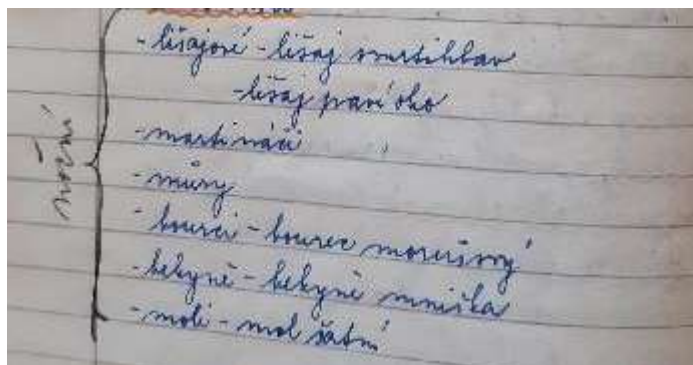 -lišajové - lišaj smrtihlav
-lišaj paví oko
-martináči
-můry
-bourci - bourec morušový
-bekyně - bekyně mniška
-moli - mol šatní
noční